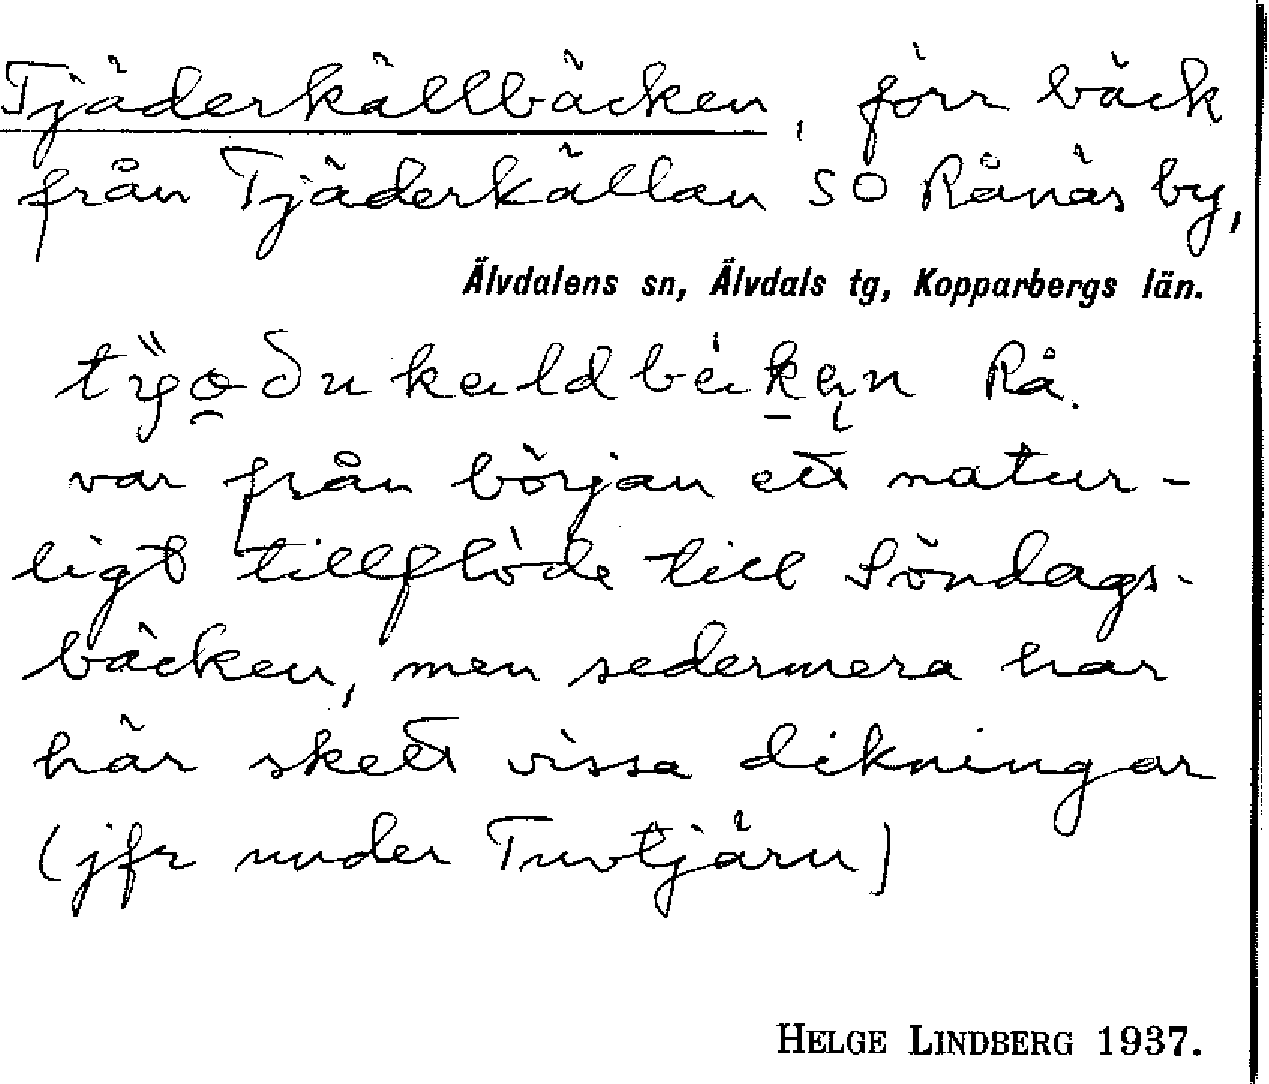 Tjäderkällbäcken, förr bäck
från Tjäderkällan SO Rånäs by,
Älvdalens sn, Älvdals tg, Kopparbergs län.
Rå.
var från början ett natur-
ligt tillflöde till Söndags-
bäcken, men sedermera har
här skett vissa dikningar
(jfr under Tuvtjärn)
HELGE LINDBERG 1937.